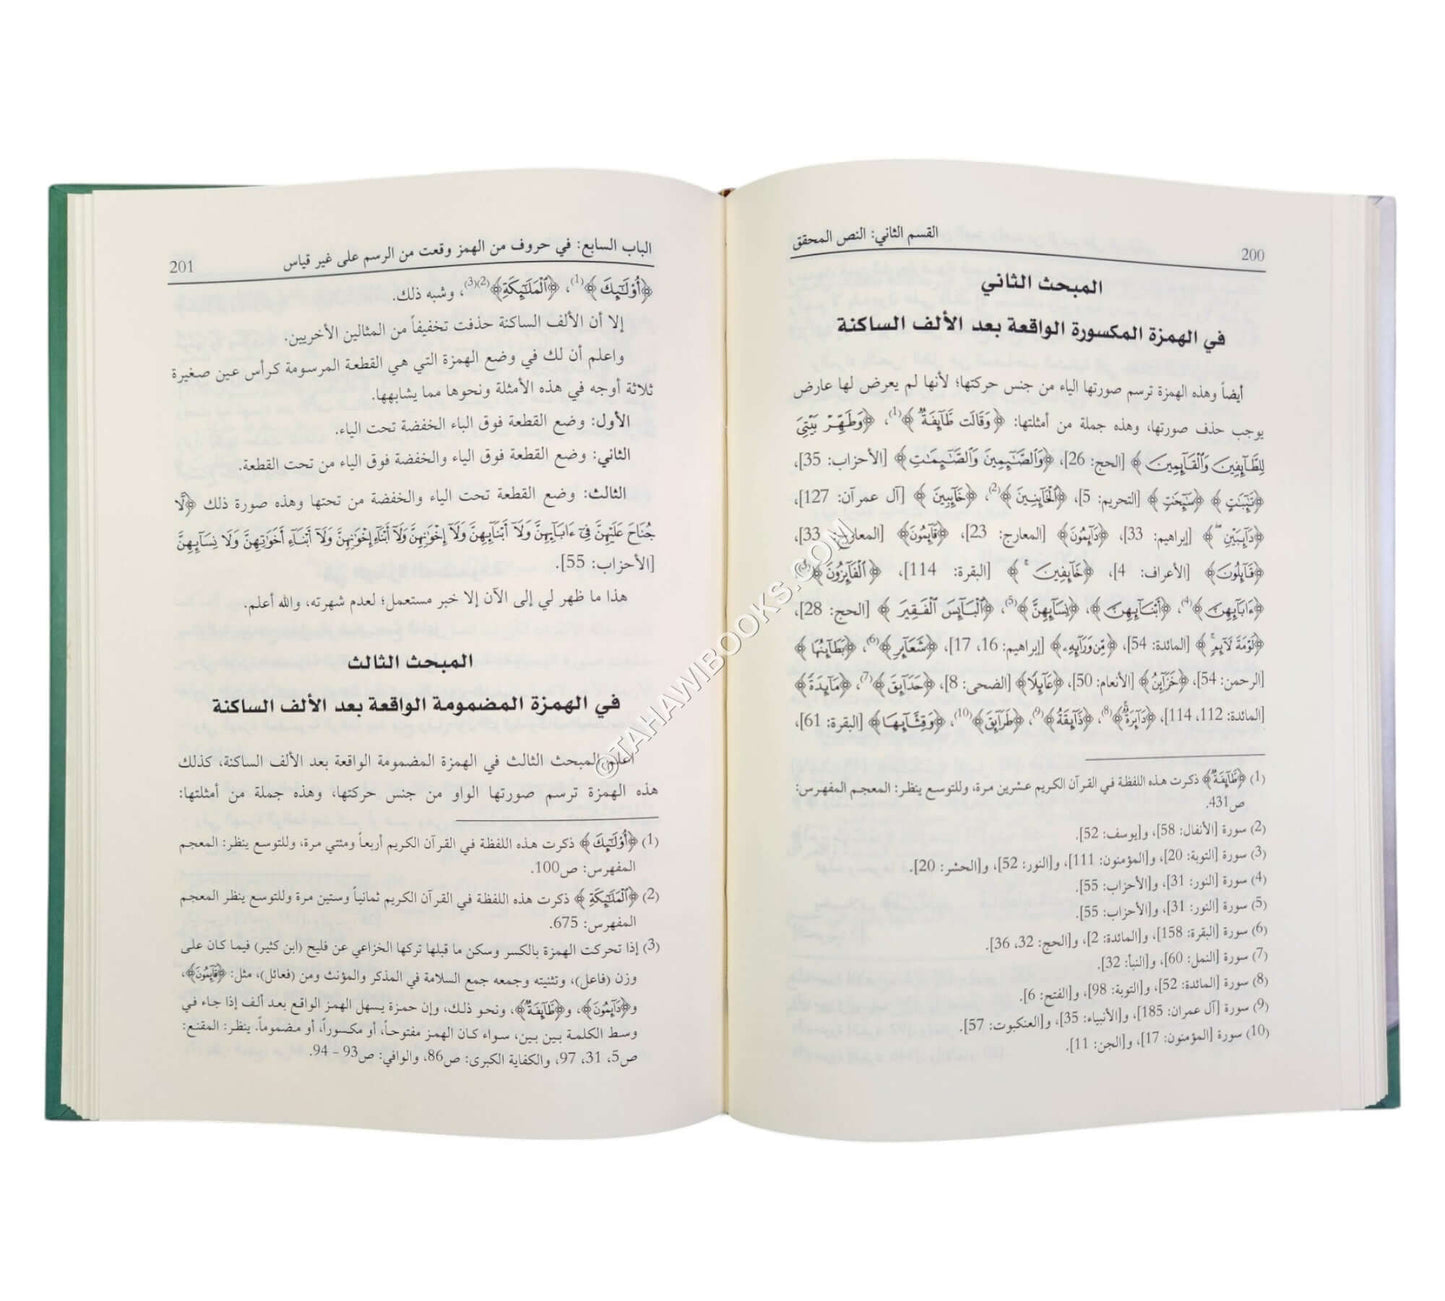 200
القسم الثاني: النص المحقق
المبحث الثاني
في الهمزة المكسورة الواقعة بعد الألف الساكنة
أيضاً وهذه الهمزة ترسم صورتها الياء من جنس حركتها؛ لأنها لم يعرض لها عارض
يوجب حذف صورتها، وهذه جملة من أمثلتها: ﴿وَقَالَت طَّآئِفَةٌ﴾(1)، ﴿وَطَهِّرْ بَيْتِيَ
لِلطَّآئِفِينَ وَالْقَآئِمِينَ﴾ [الحج: 26]، ﴿وَالصَّٰٓئِمِينَ وَالصَّٰٓئِمَٰتِ﴾ [الأحزاب: 35]،
﴿تَٰٓئِبَٰتٍ﴾ ﴿سَٰٓئِحَٰتٍ﴾ [التحريم: 5]، ﴿الْخَآئِنِينَ﴾(2)، ﴿خَآئِبِينَ﴾ [آل عمران: 127]،
﴿دَآئِبَيْنِ﴾ [إبراهيم: 33]، ﴿دَآئِمُونَ﴾ [المعارج: 23]، ﴿قَآئِمُونَ﴾ [المعارج: 33]،
﴿قَآئِلُونَ﴾ [الأعراف: 4]، ﴿خَآئِفِينَ﴾ [البقرة: 114]، ﴿الْفَآئِزُونَ﴾
﴿ءَابَآئِهِنَّ﴾(4)، ﴿أَبْنَآئِهِنَّ﴾، ﴿نِسَآئِهِنَّ﴾(5)، ﴿الْبَآئِسَ الْفَقِيرَ﴾ [الحج: 28]،
﴿لَوْمَةَ لَآئِمٍ﴾ [المائدة: 54]، ﴿مِّن وَرَآئِهِۦ﴾ [إبراهيم: 16، 17]، ﴿شَعَآئِرِ﴾(6)، ﴿بَطَآئِنُهَا﴾
[الرحمن: 54]، ﴿خَزَآئِنُ﴾ [الأنعام: 50]، ﴿عَآئِلًا﴾ [الضحى: 8]، ﴿حَدَآئِقَ﴾(7)، ﴿مَآئِدَةً﴾
[المائدة: 112، 114]، ﴿دَآئِرَةٌ﴾(8)، ﴿ذَآئِقَةُ﴾(9)، ﴿طَرَآئِقَ﴾(10)، ﴿وَقِثَّآئِهَا﴾ [البقرة: 61]،
(1) ﴿طَآئِفَةٌ﴾ ذكرت هذه اللفظة في القرآن الكريم عشرين مرة، وللتوسع ينظر: المعجم المفهرس:
ص431.
(2) سورة [الأنفال: 58]، و[يوسف: 52].
(3) سورة [التوبة: 20]، و[المؤمنون: 111]، و[النور: 52]، و[الحشر: 20].
(4) سورة [النور: 31]، و[الأحزاب: 55].
(5) سورة [النور: 31]، و[الأحزاب: 55].
(6) سورة [البقرة: 158]، و[المائدة: 2]، و[الحج: 32، 36].
(7) سورة [النمل: 60]، و[النبأ: 32].
(8) سورة [المائدة: 52]، و[التوبة: 98]، و[الفتح: 6].
(9) سورة [آل عمران: 185]، و[الأنبياء: 35]، و[العنكبوت: 57].
(10) سورة [المؤمنون: 17]، و[الجن: 11].
الباب السابع: في حروف من الهمز وقعت من الرسم على غير قياس
201
﴿أُوْلَٰٓئِكَ﴾(1)، ﴿الْمَلَٰٓئِكَةِ﴾(2)(3)، وشبه ذلك.
إلا أن الألف الساكنة حذفت تخفيفاً من المثالين الأخريين.
واعلم أن لك في وضع الهمزة التي هي القطعة المرسومة كرأس عين صغيرة
ثلاثة أوجه في هذه الأمثلة ونحوها مما يشابهها.
الأول: وضع القطعة فوق الباء الخفضة تحت الياء.
الثاني: وضع القطعة فوق الياء والخفضة فوق الياء من تحت القطعة.
الثالث: وضع القطعة تحت الياء والخفضة من تحتها وهذه صورة ذلك ﴿لَّا
جُنَاحَ عَلَيْهِنَّ فِىٓ ءَابَآئِهِنَّ وَلَآ أَبْنَآئِهِنَّ وَلَآ إِخْوَٰنِهِنَّ وَلَآ أَبْنَآءِ إِخْوَٰنِهِنَّ وَلَآ أَبْنَآءِ أَخَوَٰتِهِنَّ وَلَا نِسَآئِهِنَّ﴾
[الأحزاب: 55].
هذا ما ظهر لي إلى الآن إلا خبر مستعمل؛ لعدم شهرته، والله أعلم.
المبحث الثالث
في الهمزة المضمومة الواقعة بعد الألف الساكنة
اعلم المبحث الثالث في الهمزة المضمومة الواقعة بعد الألف الساكنة، كذلك
هذه الهمزة ترسم صورتها الواو من جنس حركتها، وهذه جملة من أمثلتها:
(1) ﴿أُوْلَٰٓئِكَ﴾ ذكرت هذه اللفظة في القرآن الكريم أربعاً ومئتي مرة، وللتوسع ينظر: المعجم
المفهرس: ص100.
(2) ﴿الْمَلَٰٓئِكَةِ﴾ ذكرت هذه اللفظة في القرآن الكريم ثمانياً وستين مرة وللتوسع ينظر المعجم
المفهرس: 675.
(3) إذا تحركت الهمزة بالكسر وسكن ما قبلها تركها الخزاعي عن فليح (ابن كثير) فيما كان على
وزن (فاعل)، وتثنيته وجمعه جمع السلامة في المذكر والمؤنث ومن (فعائل)، مثل: ﴿قَآئِمُونَ﴾،
و﴿دَآئِمُونَ﴾، و﴿طَآئِفَةٌ﴾، ونحو ذلك، وإن حمزة يسهل الهمز الواقع بعد ألف إذا جاء في
وسط الكلمة بين بين، سواء كان الهمز مفتوحاً، أو مكسوراً، أو مضموماً. ينظر: المقنع:
ص5، 31، 97، والكفاية الكبرى: ص86، والوافي: ص93 – 94.
©TAHAWIBOOKS.COM